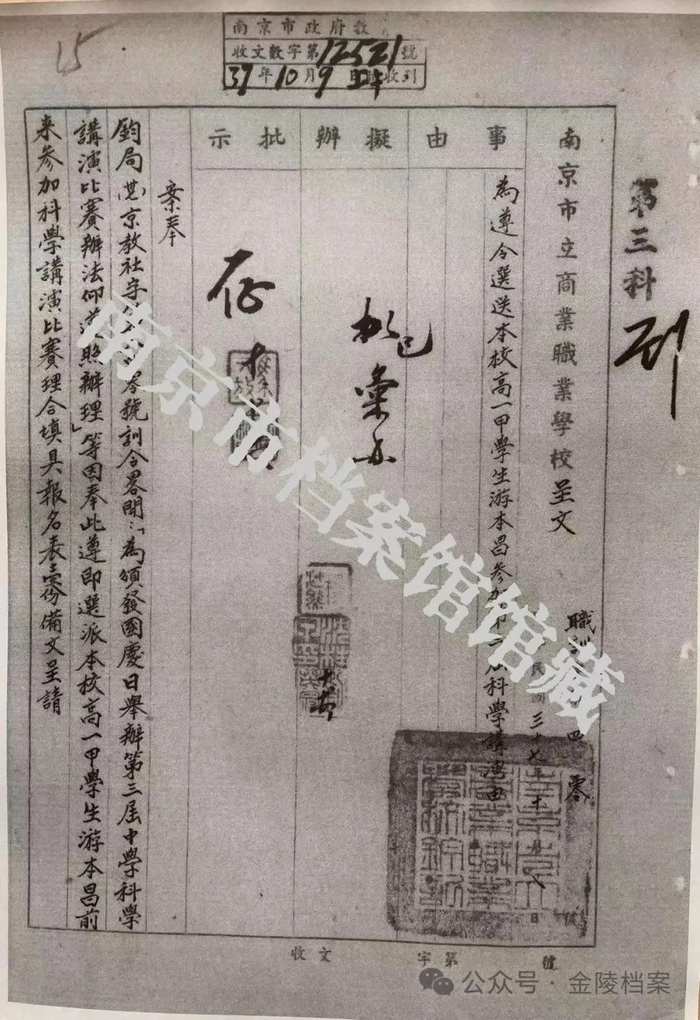 15
南京市政府教
收文教字第12521號
37年10月9日 收到
第三科
南京市立商業職業學校呈文
職訓 四零
民國三十七年十月 日
號
事由
為遵令選送本校高一甲學生游本昌參加第三屆科學講演由
擬辦
批示
存
案奉
鈞局 京教社字 號訓令畧開：「為頒發國慶日舉辦第三屆中學科學
講演比賽辦法仰遵照辦理」等因奉此遵即選派本校高一甲學生游本昌前
來參加科學講演比賽理合填具報名表壹份備文呈請
收文 字第 號
南京市档案馆馆藏
公众号·金陵档案